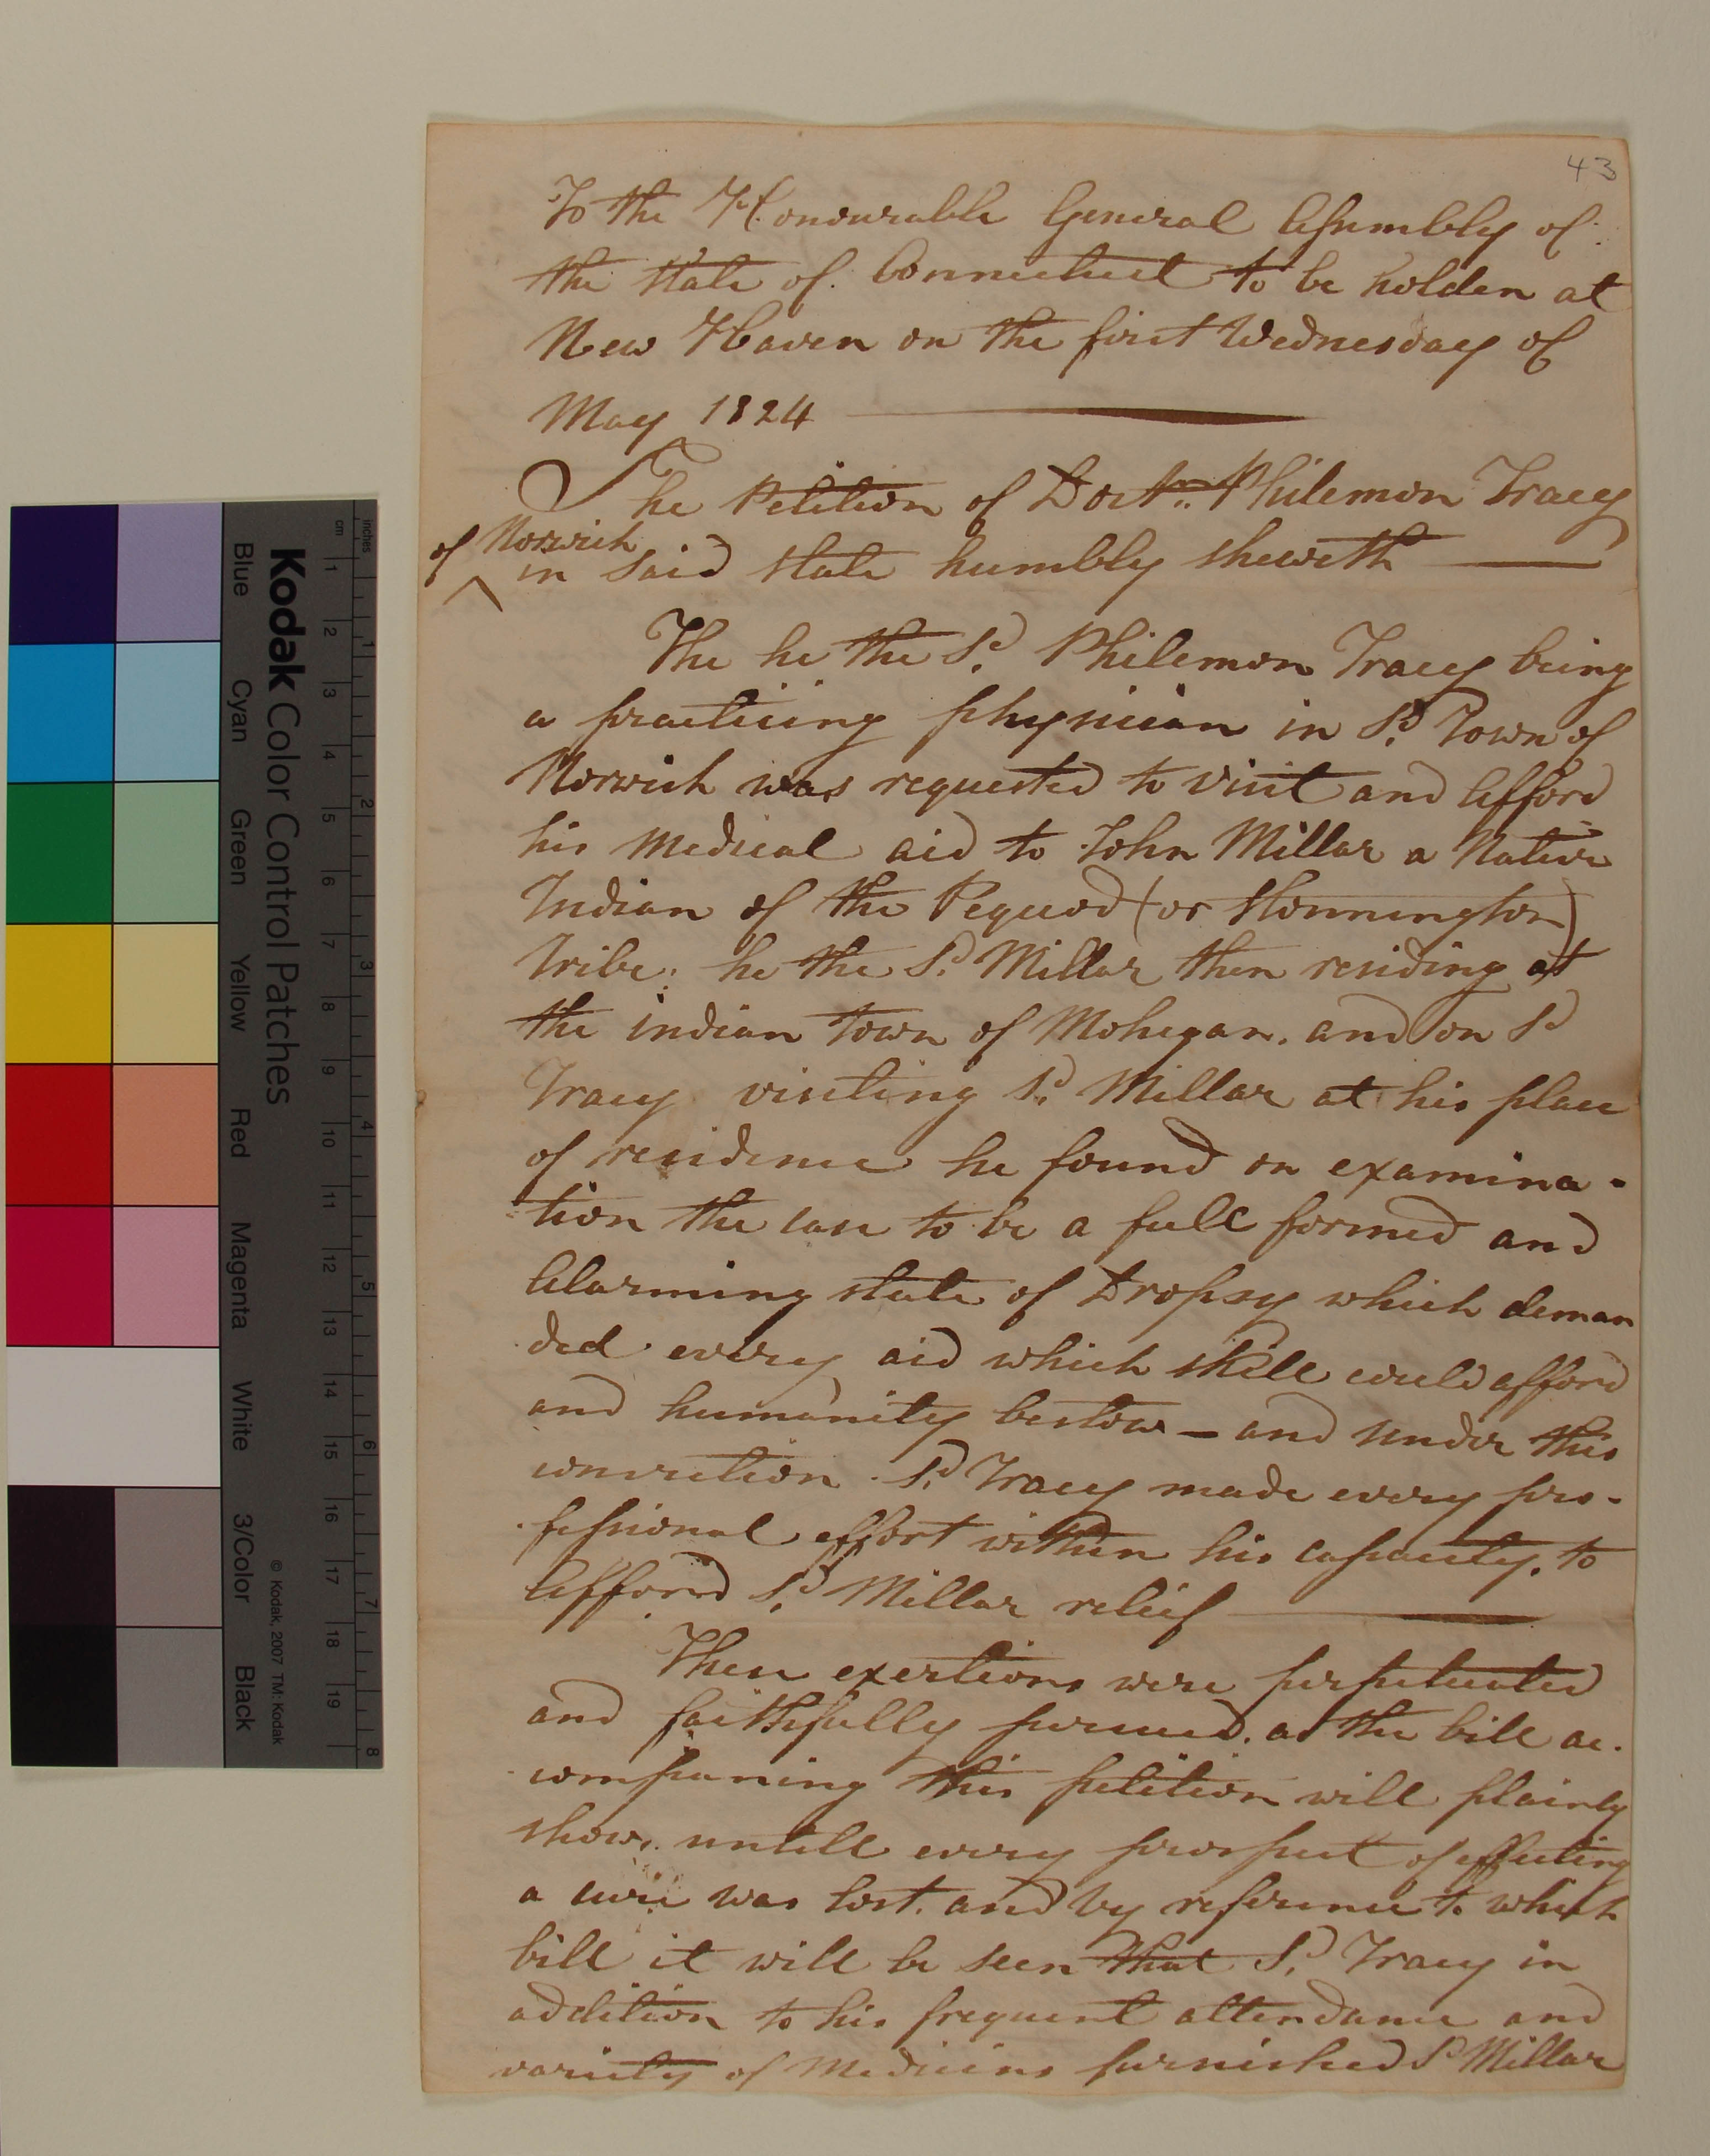 43
To the Honourable General Assembly of
the State of Connecticut to be holden at
New Haven on the first Wednesday of
May 1824
The Petition of Doctr. Philemon Tracy
of Norwich
in said State humbly sheweth
The he the Sd. Philemon Tracy being
a practicing physician in Sd. Town of
Norwich was requested to visit and Afford
his Medical aid to John Millar a Native
Indian of the Pequod (or Stonnington)
Tribe; he the Sd. Millar then residing at
the indian town of Mohegan. and on Sd
Tracy visiting Sd. Millar at his place
of residence he found on examina-
tion the case to be a full formed and
Alarming state of Dropsy which deman
ded every aid which skill could afford
and humanity bestow – and under this
conviction Sd. Tracy made every pro-
fessional effort within his capacity, to
Afford Sd. Millar relief
These exertions were perpetuated
and faithfully pursued. as the bill ac-
companing this petition will plainly
show. untill every prospect of effecting
a cure was lost. and by reference to which
bill it will be seen that Sd. Tracy in
addition to his frequent attendance and
variety of Medicins furnished Sd Millar
Kodak Color Control Patches
Blue Cyan Green Yellow Red Magenta White 3/Color Black
© Kodak, 2007 TM: Kodak
inches 1 2 3 4 5 6 7 8
cm 1 2 3 4 5 6 7 8 9 10 11 12 13 14 15 16 17 18 19